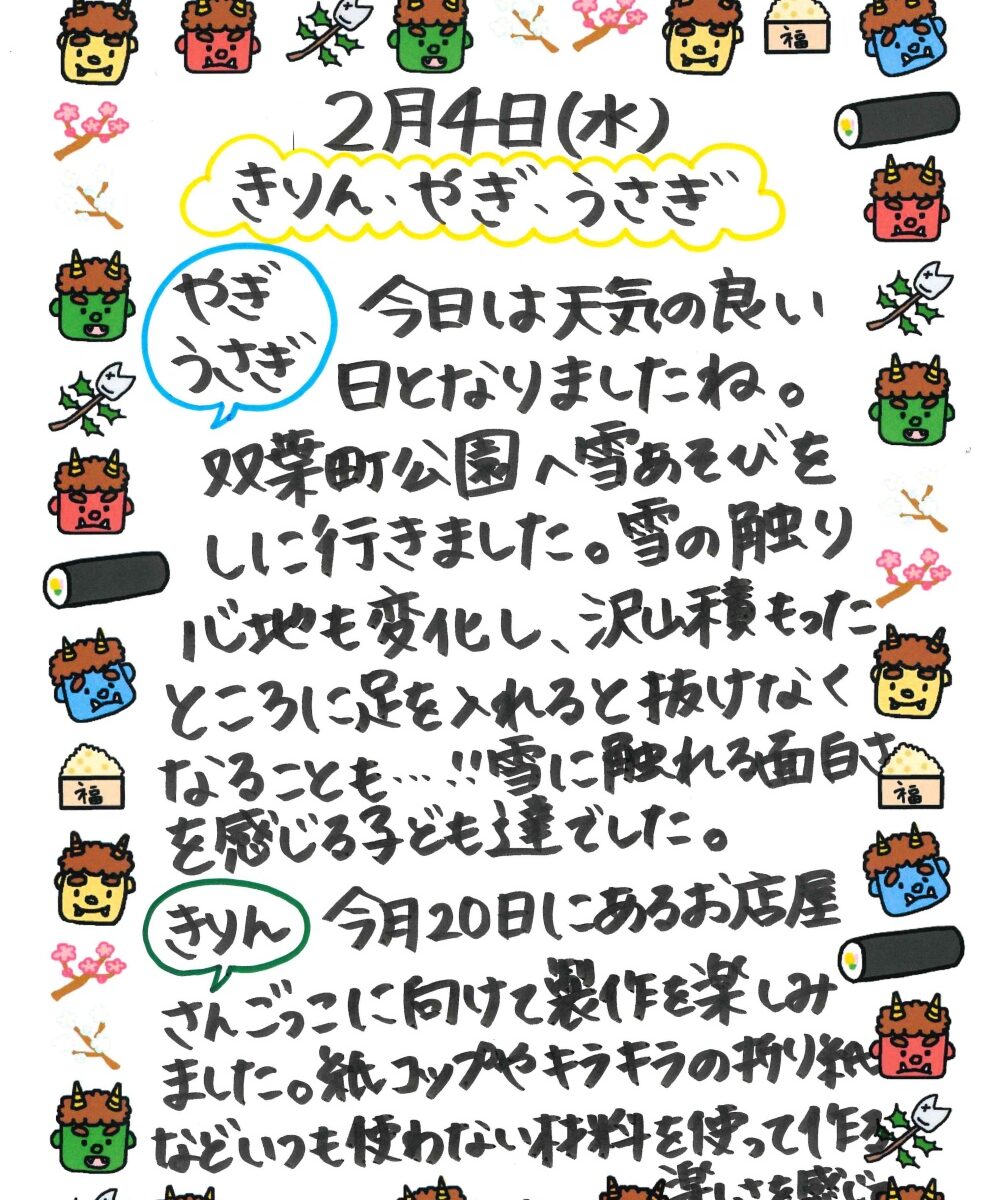 2月4日(水)
きりん、やぎ、うさぎ
やぎ
うさぎ
今日は天気の良い
日となりましたね。
双葉町公園へ雪あそびを
しに行きました。雪の触り
心地も変化し、沢山積もった
ところに足を入れると抜けなく
なることも…!!雪に触れる面白さ
を感じる子ども達でした。
きりん
今月20日にあるお店屋
さんごっこに向けて製作を楽しみ
ました。紙コップやキラキラの折り紙
などいつも使わない材料を使って作る
楽しさを感じ
福
福
福